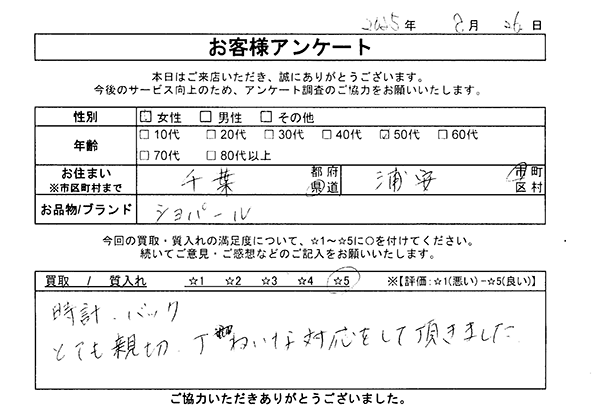 2025年 8月 26日
お客様アンケート
本日はご来店いただき、誠にありがとうございます。
今後のサービス向上のため、アンケート調査のご協力をお願いいたします。
性別 ☑ 女性 □ 男性 □ その他
年齢 □ 10代 □ 20代 □ 30代 □ 40代 ☑ 50代 □ 60代
□ 70代 □ 80代以上
お住まい ※市区町村まで 千葉 都府県道 浦安 市町区村
お品物/ブランド ショパール
今回の買取・質入れの満足度について、☆1~☆5に○を付けてください。
続いてご意見・ご感想などのご記入をお願いいたします。
買取 / 質入れ ☆1 ☆2 ☆3 ☆4 ☆5 ※【評価:☆1(悪い)-☆5(良い)】
時計.バック
とても親切.丁ねいな対応をして頂きました
ご協力いただきありがとうございました。